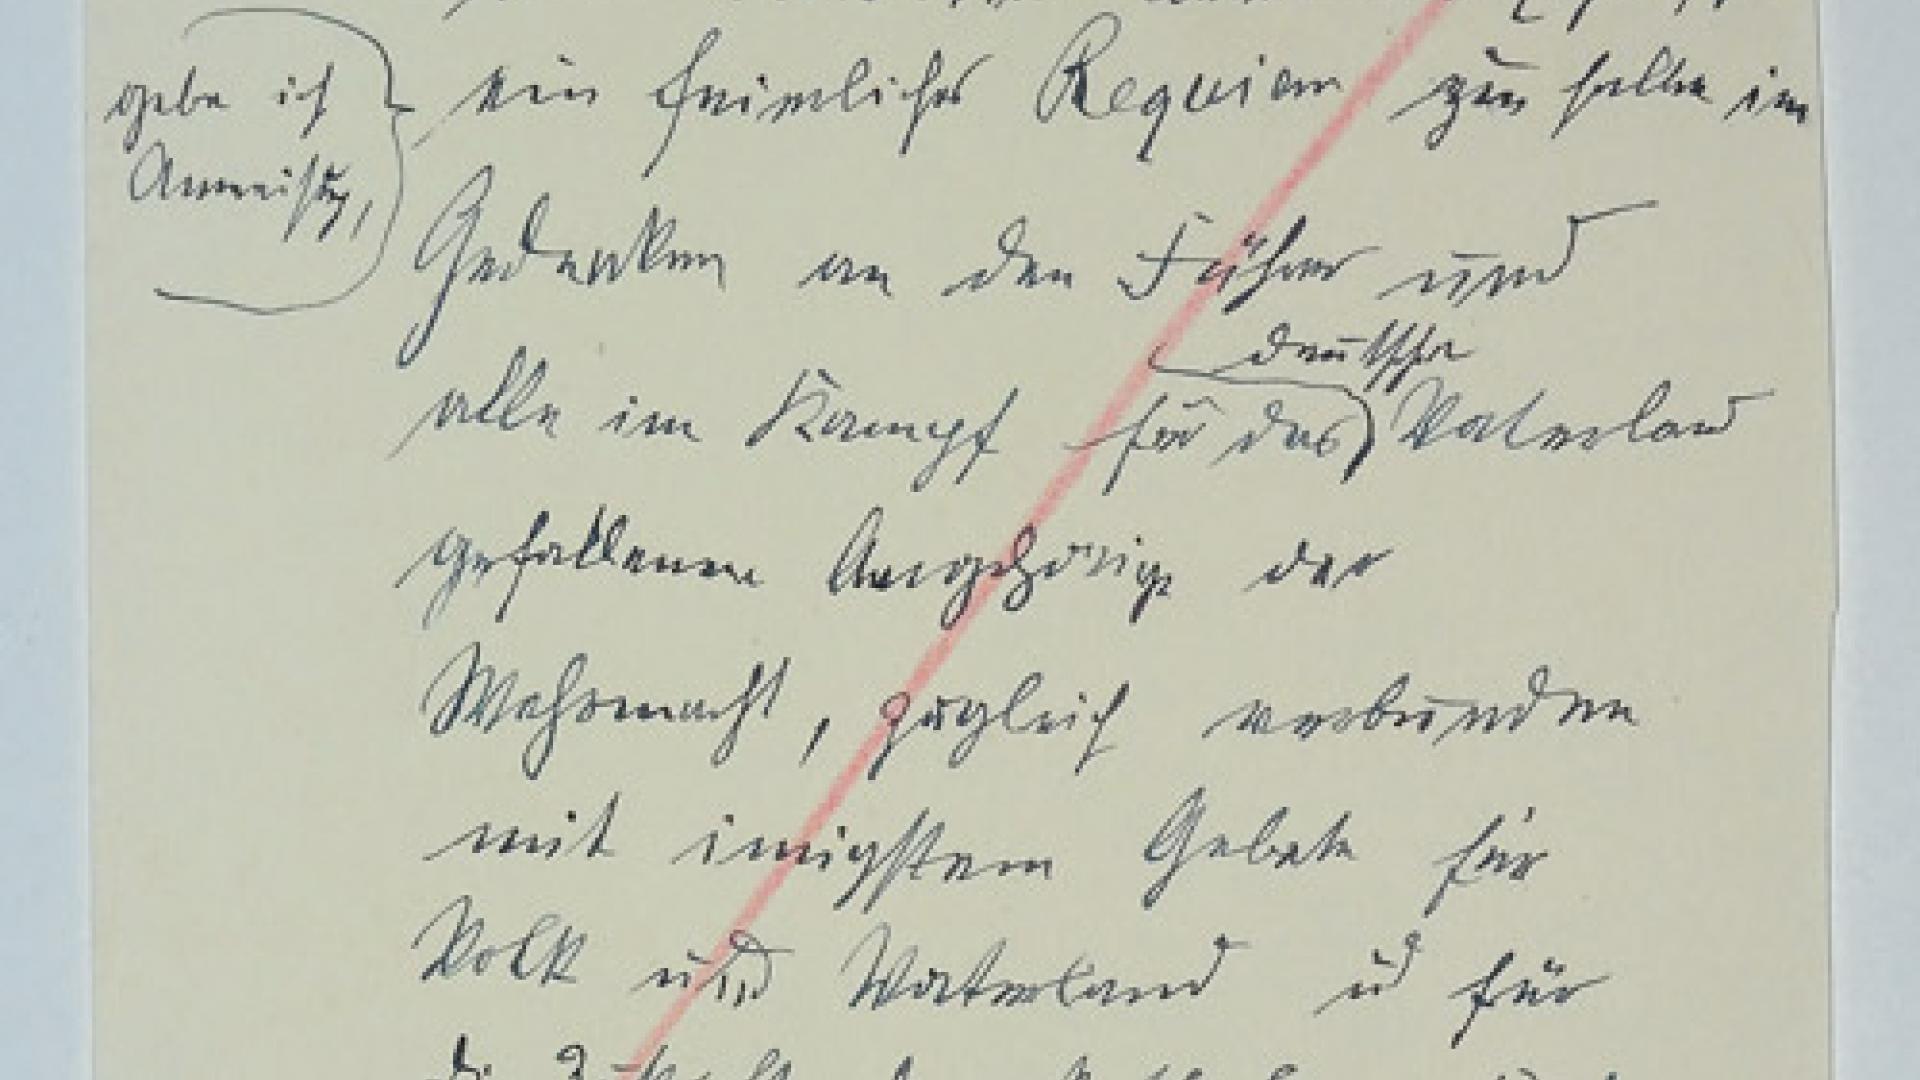 gebe ich
Anweisung,
ein feierliches Requiem zu halten im
Gedenken an den Führer und
deutsche
alle im Kampf für das Vaterland
gefallenen Angehörige der
Wehrmacht, zugleich verbunden
mit innigstem Gebete für
Volk und Vaterland ud für
die